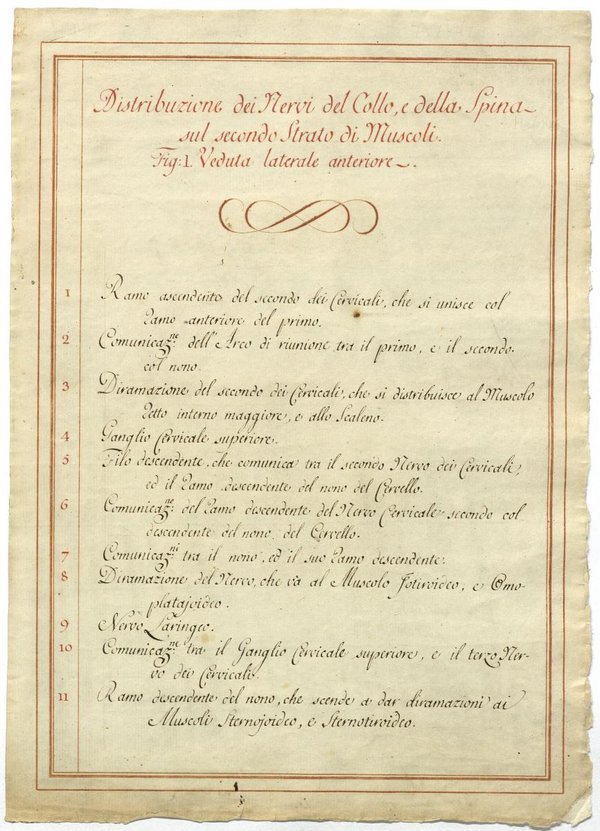 Distribuzione dei Nervi del Collo, e della Spina
sul secondo Strato di Muscoli.
Fig: 1. Veduta laterale anteriore.
1 Ramo ascendente del secondo dei Cervicali, che si unisce col
Ramo anteriore del primo.
2 Comunicaz.ne dell'Arco di riunione tra il primo, e il secondo
col nono.
3 Diramazione del secondo dei Cervicali, che si distribuisce al Muscolo
Retto interno maggiore, e allo Scaleno.
4 Ganglio Cervicale superiore.
5 Filo descendente, che comunica tra il secondo Nervo dei Cervicali,
ed il Ramo descendente del nono del Cervello.
6 Comunicaz.ne del Ramo descendente del Nervo Cervicale secondo col
descendente del nono del Cervello.
7 Comunicaz.ni tra il nono, ed il suo Ramo descendente.
8 Diramazione del Nervo, che va al Muscolo Jotiroideo, e Omo-
platajoideo.
9 Nervo Laringeo.
10 Comunicaz.ne tra il Ganglio Cervicale superiore, e il terzo Ner-
vo dei Cervicali.
11 Ramo descendente del nono, che scende a dar diramazioni ai
Muscoli Sternojoideo, e Sternotiroideo.